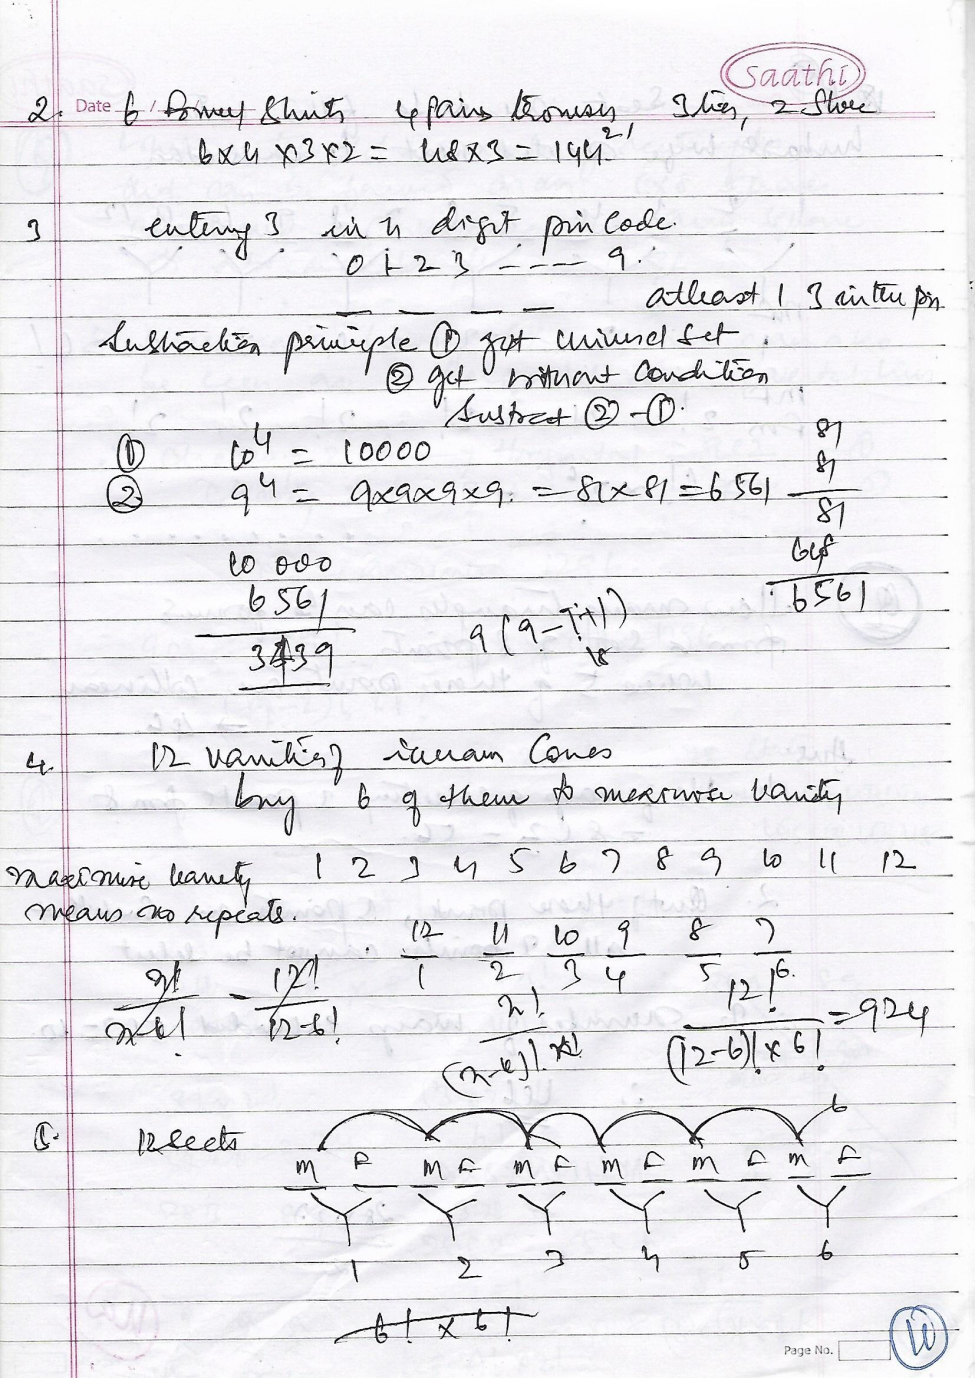 saathi
2. Date / / 6 Shirts 4 pairs trousers, 3 ties, 2 Shoe
6x4 x3x2 = 48x3 = 144.
3 entering 3 in 4 digit pin code.
0 1 2 3 ---- 9.
_ _ _ _ atleast 1 3 in the pin
Substraction principle ① get universal set.
② get without condition
Substract ② - ①.
① 10⁴ = 10000
② 9⁴ = 9x9x9x9. = 81x81 = 6561
81
81
81
648
6561
10 000
6561
3439
4. 12 varities of icecream Cones
buy 6 of them to maximise varity
maximise varity 1 2 3 4 5 6 7 8 9 10 11 12
means no repeats.
12/1 11/2 10/3 9/4 8/5 7/6.
n!/n-6! = 12!/12-6! n!/(n-r)! x r! 12!/(12-6)! x 6! = 924
5. 12 seats 6
M F M F M F M F M F M F
1 2 3 4 5 6
6! x 6!
Page No.